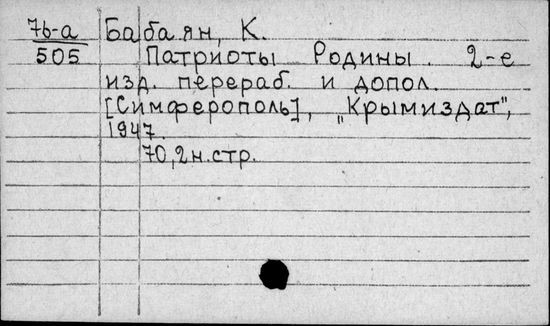 7б-а Бабаян, К.
505 Патриоты Родины. 2-е
изд. перераб. и допол.
[Симферополь], „Крымиздат",
1947.
70,2н.стр.